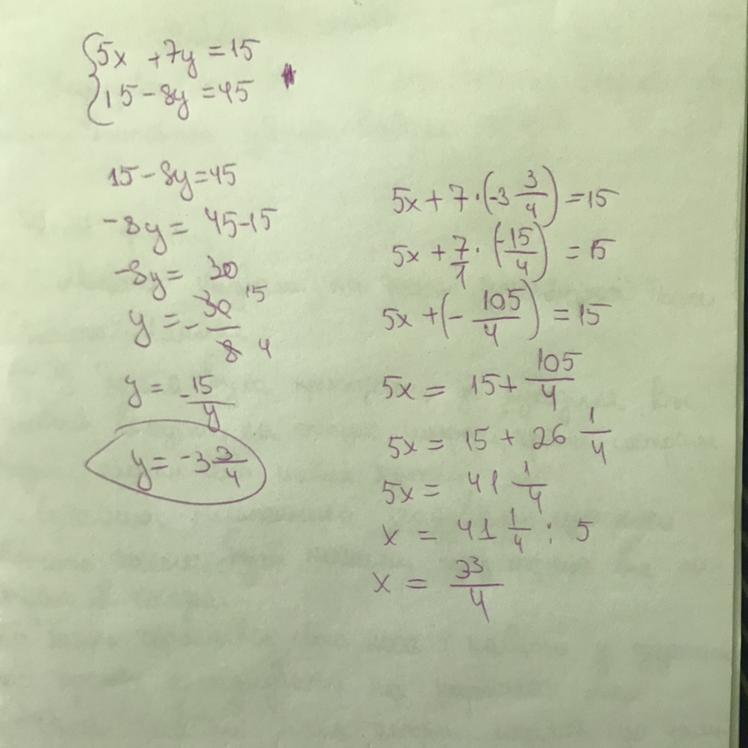 5x + 7y = 15
15 - 8y = 45
15 - 8y = 45
-8y = 45 - 15
-8y = 30
y = - 30/8 15 4
y = -15/4
y = -3 3/4
5x + 7 · (-3 3/4) = 15
5x + 7/1 · (-15/4) = 15
5x + (- 105/4) = 15
5x = 15 + 105/4
5x = 15 + 26 1/4
5x = 41 1/4
x = 41 1/4 : 5
x = 33/4